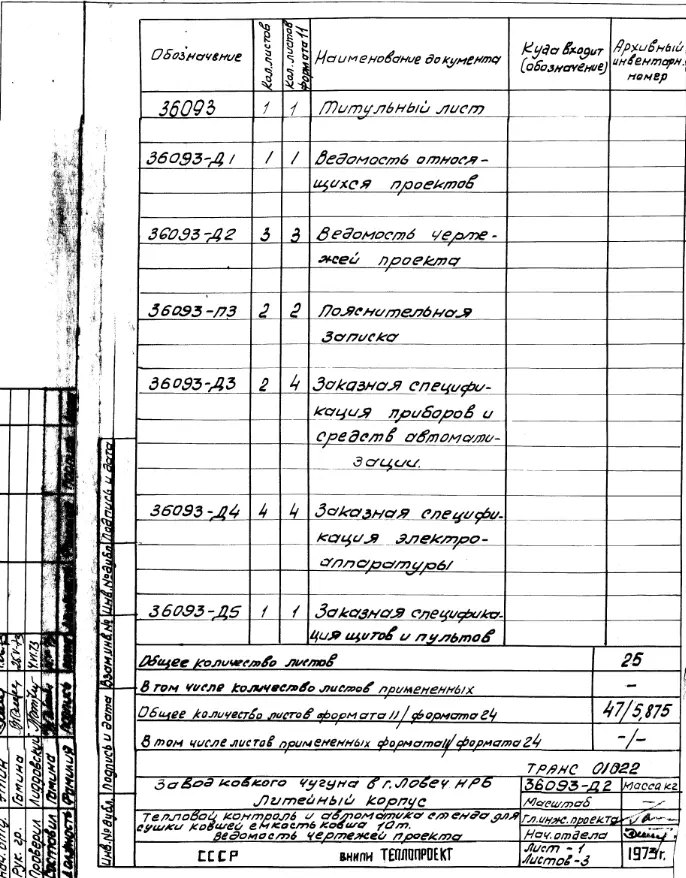 Обозначение Кол.листов Кол.листов формата 11 Наименование документа Куда входит (обозначение) Архивный инвентарн. номер
36093 1 1 Титульный лист
36093-Д1 1 1 Ведомость относя-
щихся проектов
36093-Д2 3 3 Ведомость черте-
жей проекта
36093-ПЗ 2 2 Пояснительная
записка
36093-Д3 2 4 Заказная специфи-
кация приборов и
средств автомати-
зации.
36093-Д4 4 4 Заказная специфи-
кация электро-
аппаратуры
36093-Д5 1 1 Заказная специфика-
ция щитов и пультов
Общее количество листов 25
В том числе количество листов примененных –
Общее количество листов формата 11/ формата 24 47/5,875
В том числе листов примененных формата 11/ формата 24 -/-
ТРАНС 01022
Завод ковкого чугуна в г.Ловеч НРБ 36093-Д2 Масса кг
Литейный корпус Масштаб
Тепловой контроль и автоматика стенда для Гл.инж.проекта
сушки ковшей емкость ковша 10т. Нач.отдела
Ведомость чертежей проекта
СССР ВНИПИ ТЕПЛОПРОЕКТ Лист - 1
Листов-3 1973г.
Инв.№дубл. Подпись и дата Взам.инв.№ Инв.№дубл. Подпись и дата
Рук. гр. Гомина
Проверил
Составил Гомина
Должность Фамилия